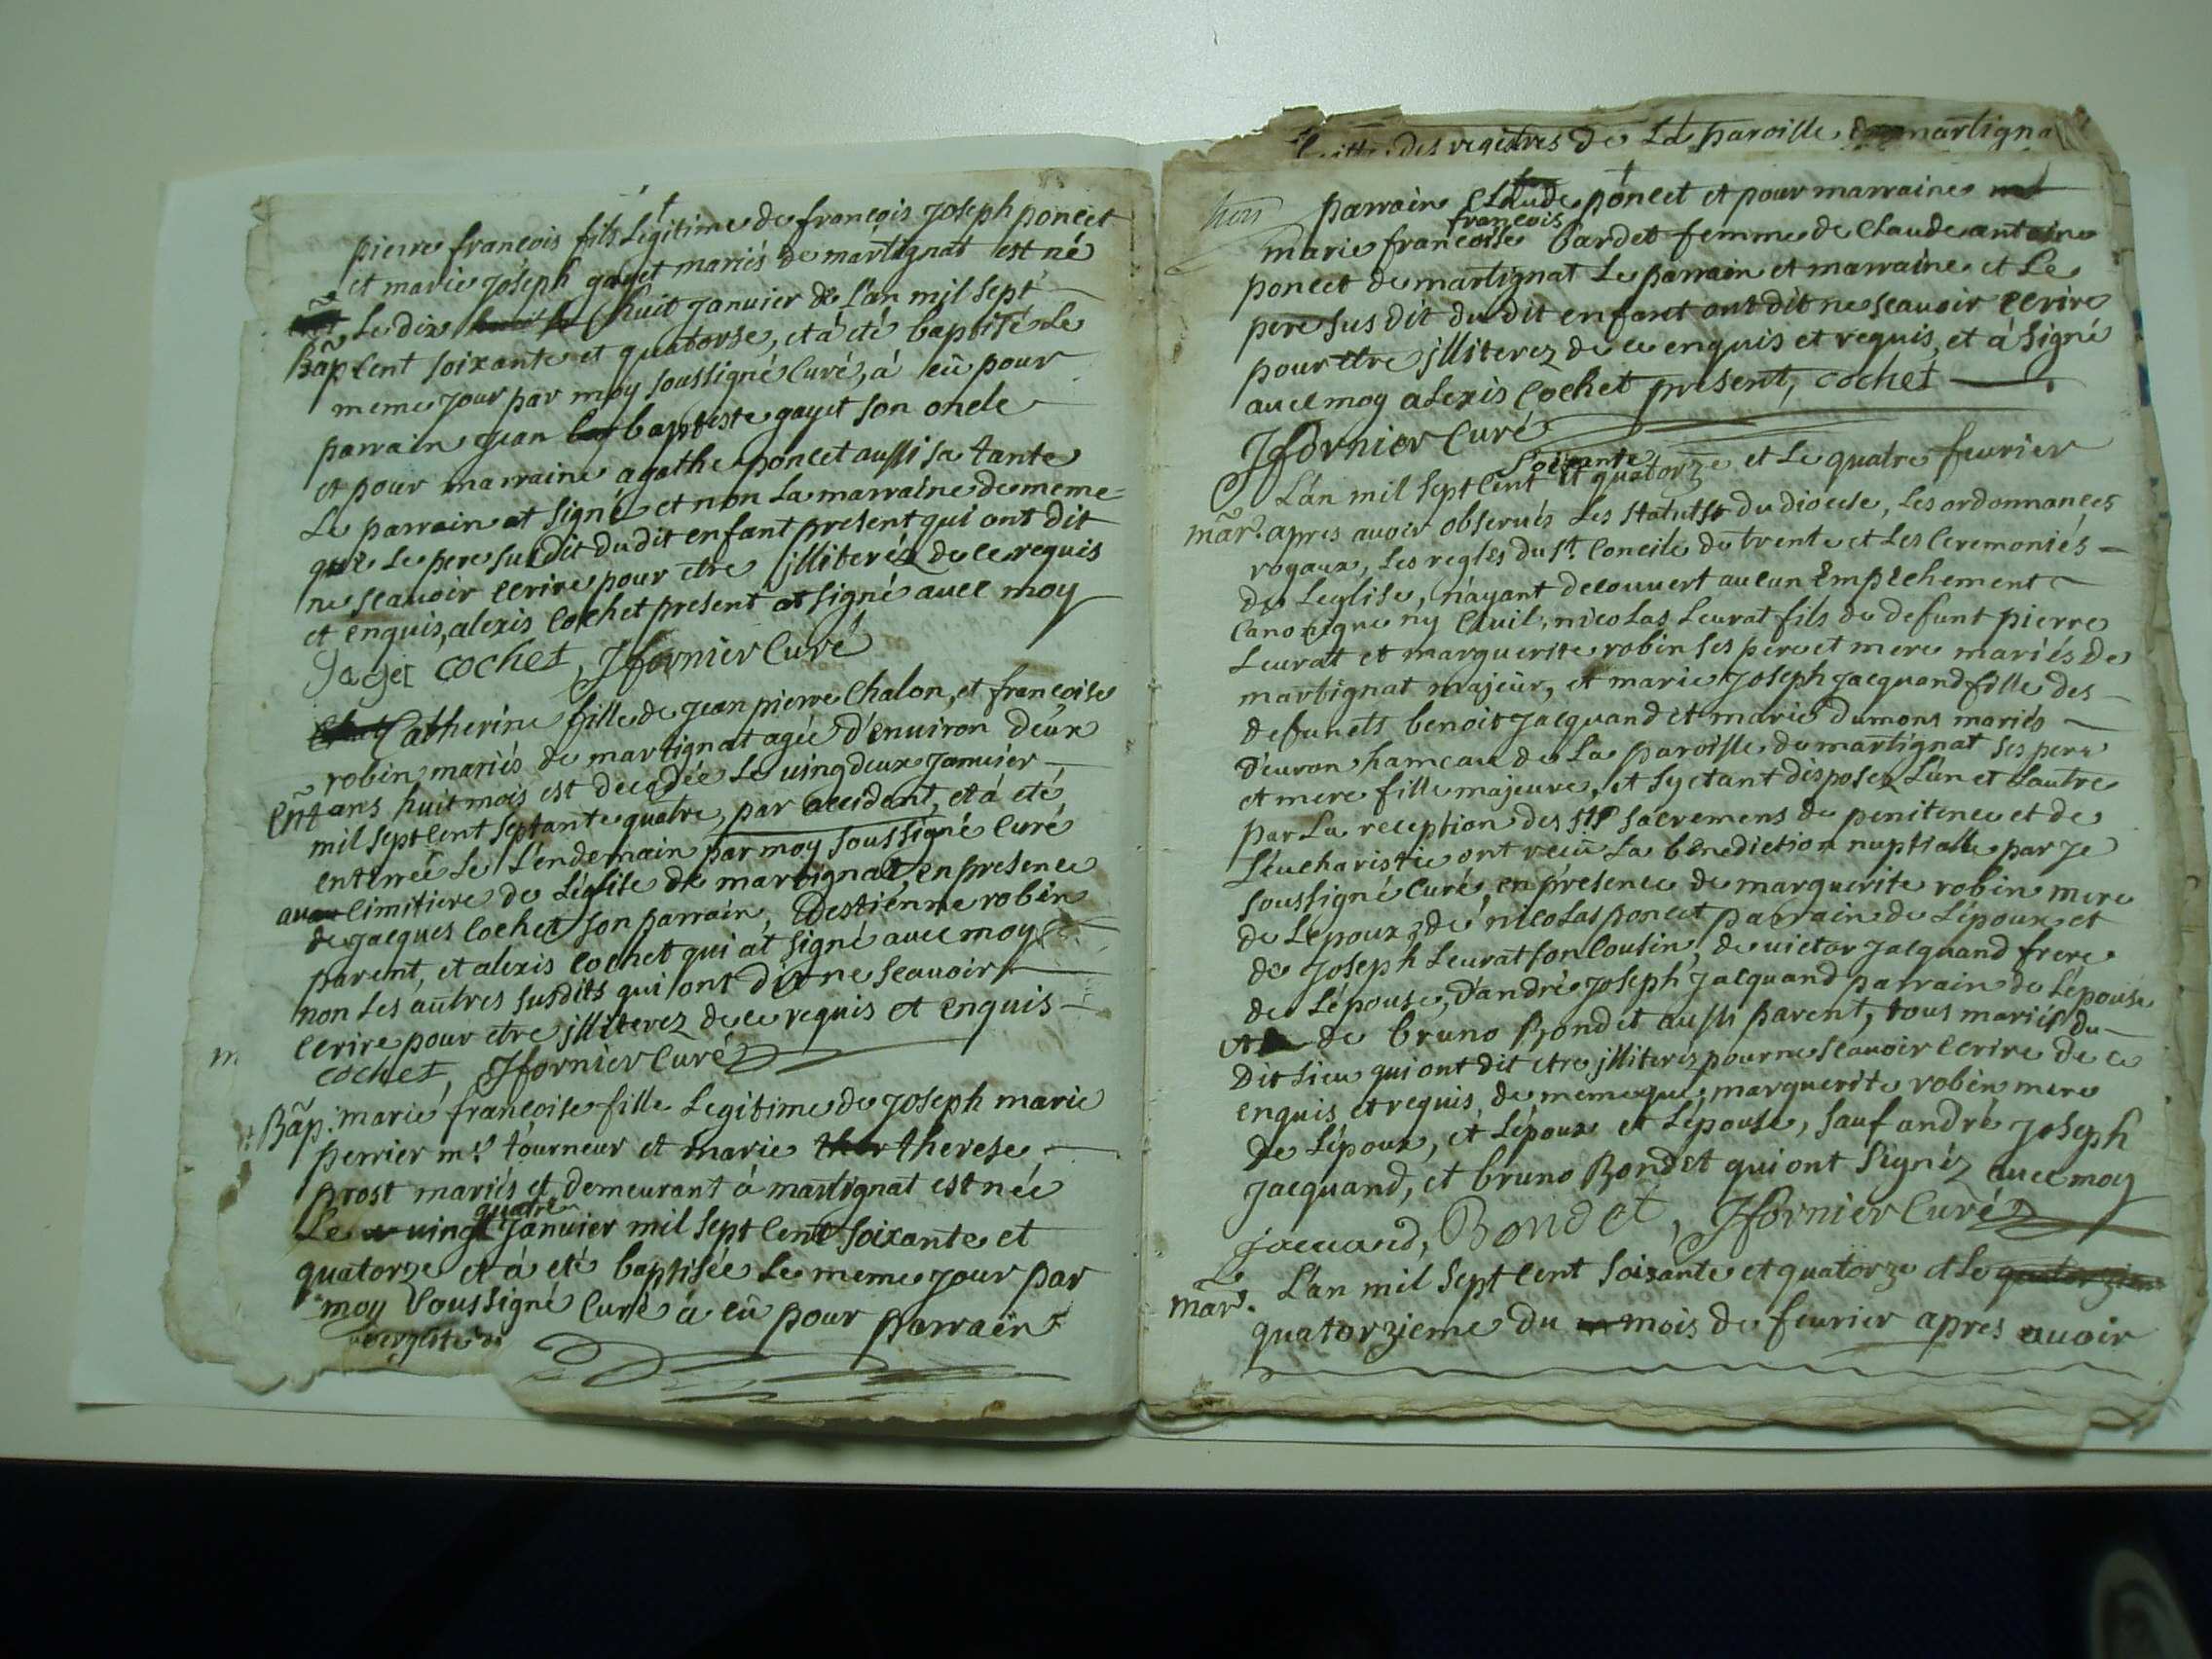 pierre françois fils Légitime de françois Joseph poncet
et marie Joseph gayet mariés de martignat est né
Le dix huit janvier de L'an mil sept
Bap. Cent soixante et quatorse, et à été baptisé Le
meme jour par moy soussigné Curé, à eû pour
parrain jean baptiste gayet son oncle
et pour marraine agathe poncet aussi sa tante
Le parrain at signé et non La marraine de meme
que Le pere susdit dudit enfant present qui ont dit
ne scavoir ecrire pour etre jlliteréz de ce requis
et enquis, alexis Cochet present at signé avec moy
Jayet cochet, Jfornier Curé
Catherine fille de jean pierre Chalon, et françoise
robin mariés de martignat agée d'environ deux
Ent ans huit mois est decedée Le vingdeux janvier
mil sept Cent septante quatre, par accident, et à eté
enterrée Le Lendemain par moy soussigné Curé
au Cimitiere de Léglise de martignat, en presence
de jacques Cochet son parrain, Destienne robin
parent, et alexis Cochet qui at signé avec moy
non Les autres susdits qui ont dit ne scavoir
ecrire pour etre jlliterez de ce requis et enquis
cochet, Jfornier Curé
Bap. marie françoise fille Legitime de Joseph marie
perrier me tourneur et marie therese
prost mariés et demeurant à martignat est née
quatre
Le vingt janvier mil sept Cent soixante et
quatorze et à eté baptisée Le meme jour par
moy soussigné Curé à eû pour parrain
des registres de La paroisse de martigna
parrain Claude poncet et pour marraine
françois
marie françoise bardet femme de Claude antoine
poncet de martignat Le parrain et marraine et Le
pere sus dit du dit enfant ont dit ne scavoir ecrire
pour etre jlliterez de ce enquis et requis, et à signé
avec moy alexis Cochet present, cochet
Jfornier Curé
soixante
L'an mil sept Cent et quatorze et Le quatre fevrier
mar. apres avoir observés Les statuts du diocese, Les ordonnances
royaux, Les regles du St. Concile de trente et Les Ceremonies
de Leglise, n'ayant decouvert aucun Empechement
Canonique ny Civil, nicolas Levrat fils de defunt pierre
Levrat et marguerite robin ses pere et mere mariés de
martignat majeur, et marie Joseph jacquand fille des
defunts benoit jacquand et marie dumons mariés
d'evron hameau de La paroisse de martignat ses pere
et mere fille majeure, et s'y etant disposez L'un et Lautre
par La reception des sts sacremens de penitence et de
Leucharistie ont recu La benediction nuptialle par je
soussigné Curé, en presence de marguerite robin mere
de Lépoux, de nicolas poncet parrain de Lépoux, et
de Joseph Levrat son Cousin, de victor jacquand frere
de Lépouse, d'andré Joseph jacquand parrain de Lépouse
de bruno Bondet aussi parent, tous mariés du
dit Lieu qui ont dit etre jlliterés pour ne scavoir ecrire de ce
enquis et requis, de meme que marguerite robin mere
de Lépoux, et Lépoux et Lépouse, sauf andré Joseph
jacquand, et bruno Bondet qui ont signéz avec moy
jacuand, Bondet, Jfornier Curé
L'an mil sept Cent soixante et quatorze et Le
mar. quatorzieme du mois de fevrier apres avoir